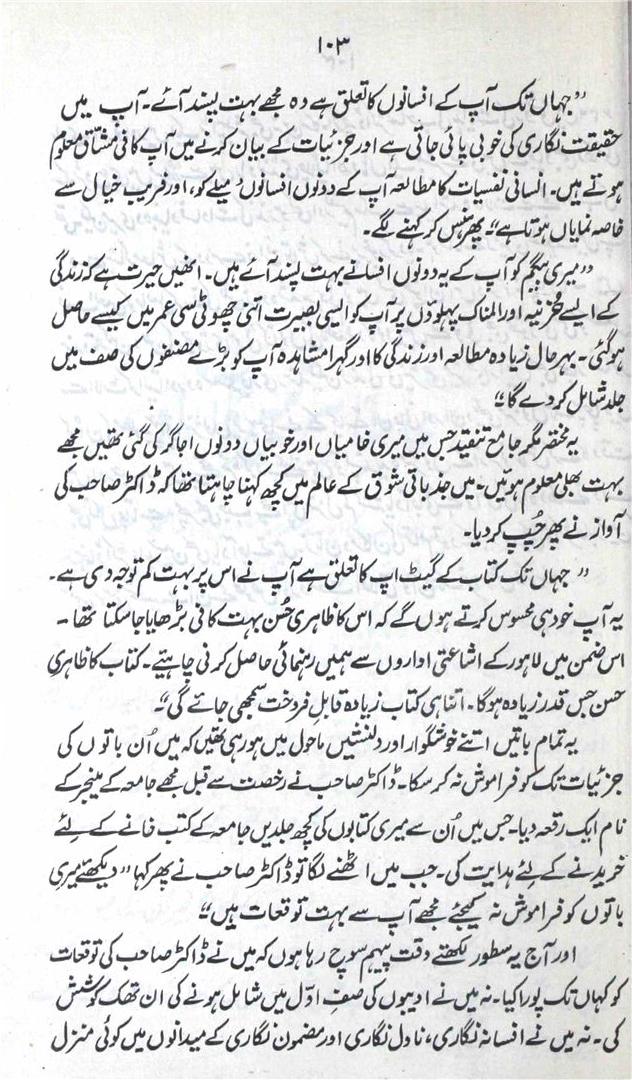 ۱۰۳
”جہاں تک آپ کے افسانوں کا تعلق ہے وہ مجھے بہت پسند آئے۔ آپ میں
حقیقت نگاری کی خوبی پائی جاتی ہے اور جزئیات کے بیان کرنے میں آپ کافی مشّاق معلوم
ہوتے ہیں۔ انسانی نفسیات کا مطالعہ آپ کے دونوں افسانوں میلے کو، اور فریب خیال سے
خاصہ نمایاں ہوتا ہے“ پھر ہنس کر کہنے لگے۔
”میری بیگم کو آپ کے یہ دونوں افسانے بہت پسند آئے ہیں۔ انھیں حیرت ہے کہ زندگی
کے ایسے حُزنیہ اور المناک پہلوؤں پر آپ کو ایسی بصیرت اتنی چھوٹی سی عمر میں کیسے حاصل
ہو گئی۔ بہر حال زیادہ مطالعہ اور زندگی کا اور گہرا مشاہدہ آپ کو بڑے مصنفوں کی صف میں
جلد شامل کر دے گا“
یہ مختصر مگر جامع تنقید جس میں میری خامیاں اور خوبیاں دونوں اجاگر کی گئی تھیں مجھے
بہت بھلی معلوم ہوئیں۔ میں جذباتی شوق کے عالم میں کچھ کہنا چاہتا تھا کہ ڈاکٹر صاحب کی
آواز نے پھر چُپ کر دیا۔
” جہاں تک کتاب کے گیٹ اپ کا تعلق ہے آپ نے اس پر بہت کم توجہ دی ہے۔
یہ آپ خود ہی محسوس کرتے ہوں گے کہ اس کا ظاہری حُسن بہت کافی بڑھایا جا سکتا تھا۔
اس ضمن میں لاہور کے اشاعتی اداروں سے ہمیں رہنمائی حاصل کرنی چاہئیے۔ کتاب کا ظاہری
حسن جس قدر زیادہ ہوگا۔ اتنا ہی کتاب زیادہ قابلِ فروخت سمجھی جائے گی“۔
یہ تمام باتیں اتنے خوشگوار اور دلنشیں ماحول میں ہو رہی تھیں کہ میں اُن باتوں کی
جزئیات تک کو فراموش نہ کر سکا۔ ڈاکٹر صاحب نے رخصت سے قبل مجھے جامعہ کے مینجر کے
نام ایک رقعہ دیا۔ جس میں اُن سے میری کتابوں کی کچھ جلدیں جامعہ کے کتب خانے کے لئے
خریدنے کے لئے ہدایت کی۔ جب میں اٹھنے لگا تو ڈاکٹر صاحب نے پھر کہا ”دیکھئے میری
باتوں کو فراموش نہ کیجئے مجھے آپ سے بہت توقعات ہیں“
اور آج یہ سطور لکھتے وقت پیہم سوچ رہا ہوں کہ میں نے ڈاکٹر صاحب کی توقعات
کو کہاں تک پورا کیا۔ نہ میں نے ادیبوں کی صفِ اوّل میں شامل ہونے کی ان تھک کوشش
کی۔ نہ میں نے افسانہ نگاری، ناول نگاری اور مضمون نگاری کے میدانوں میں کوئی منزل